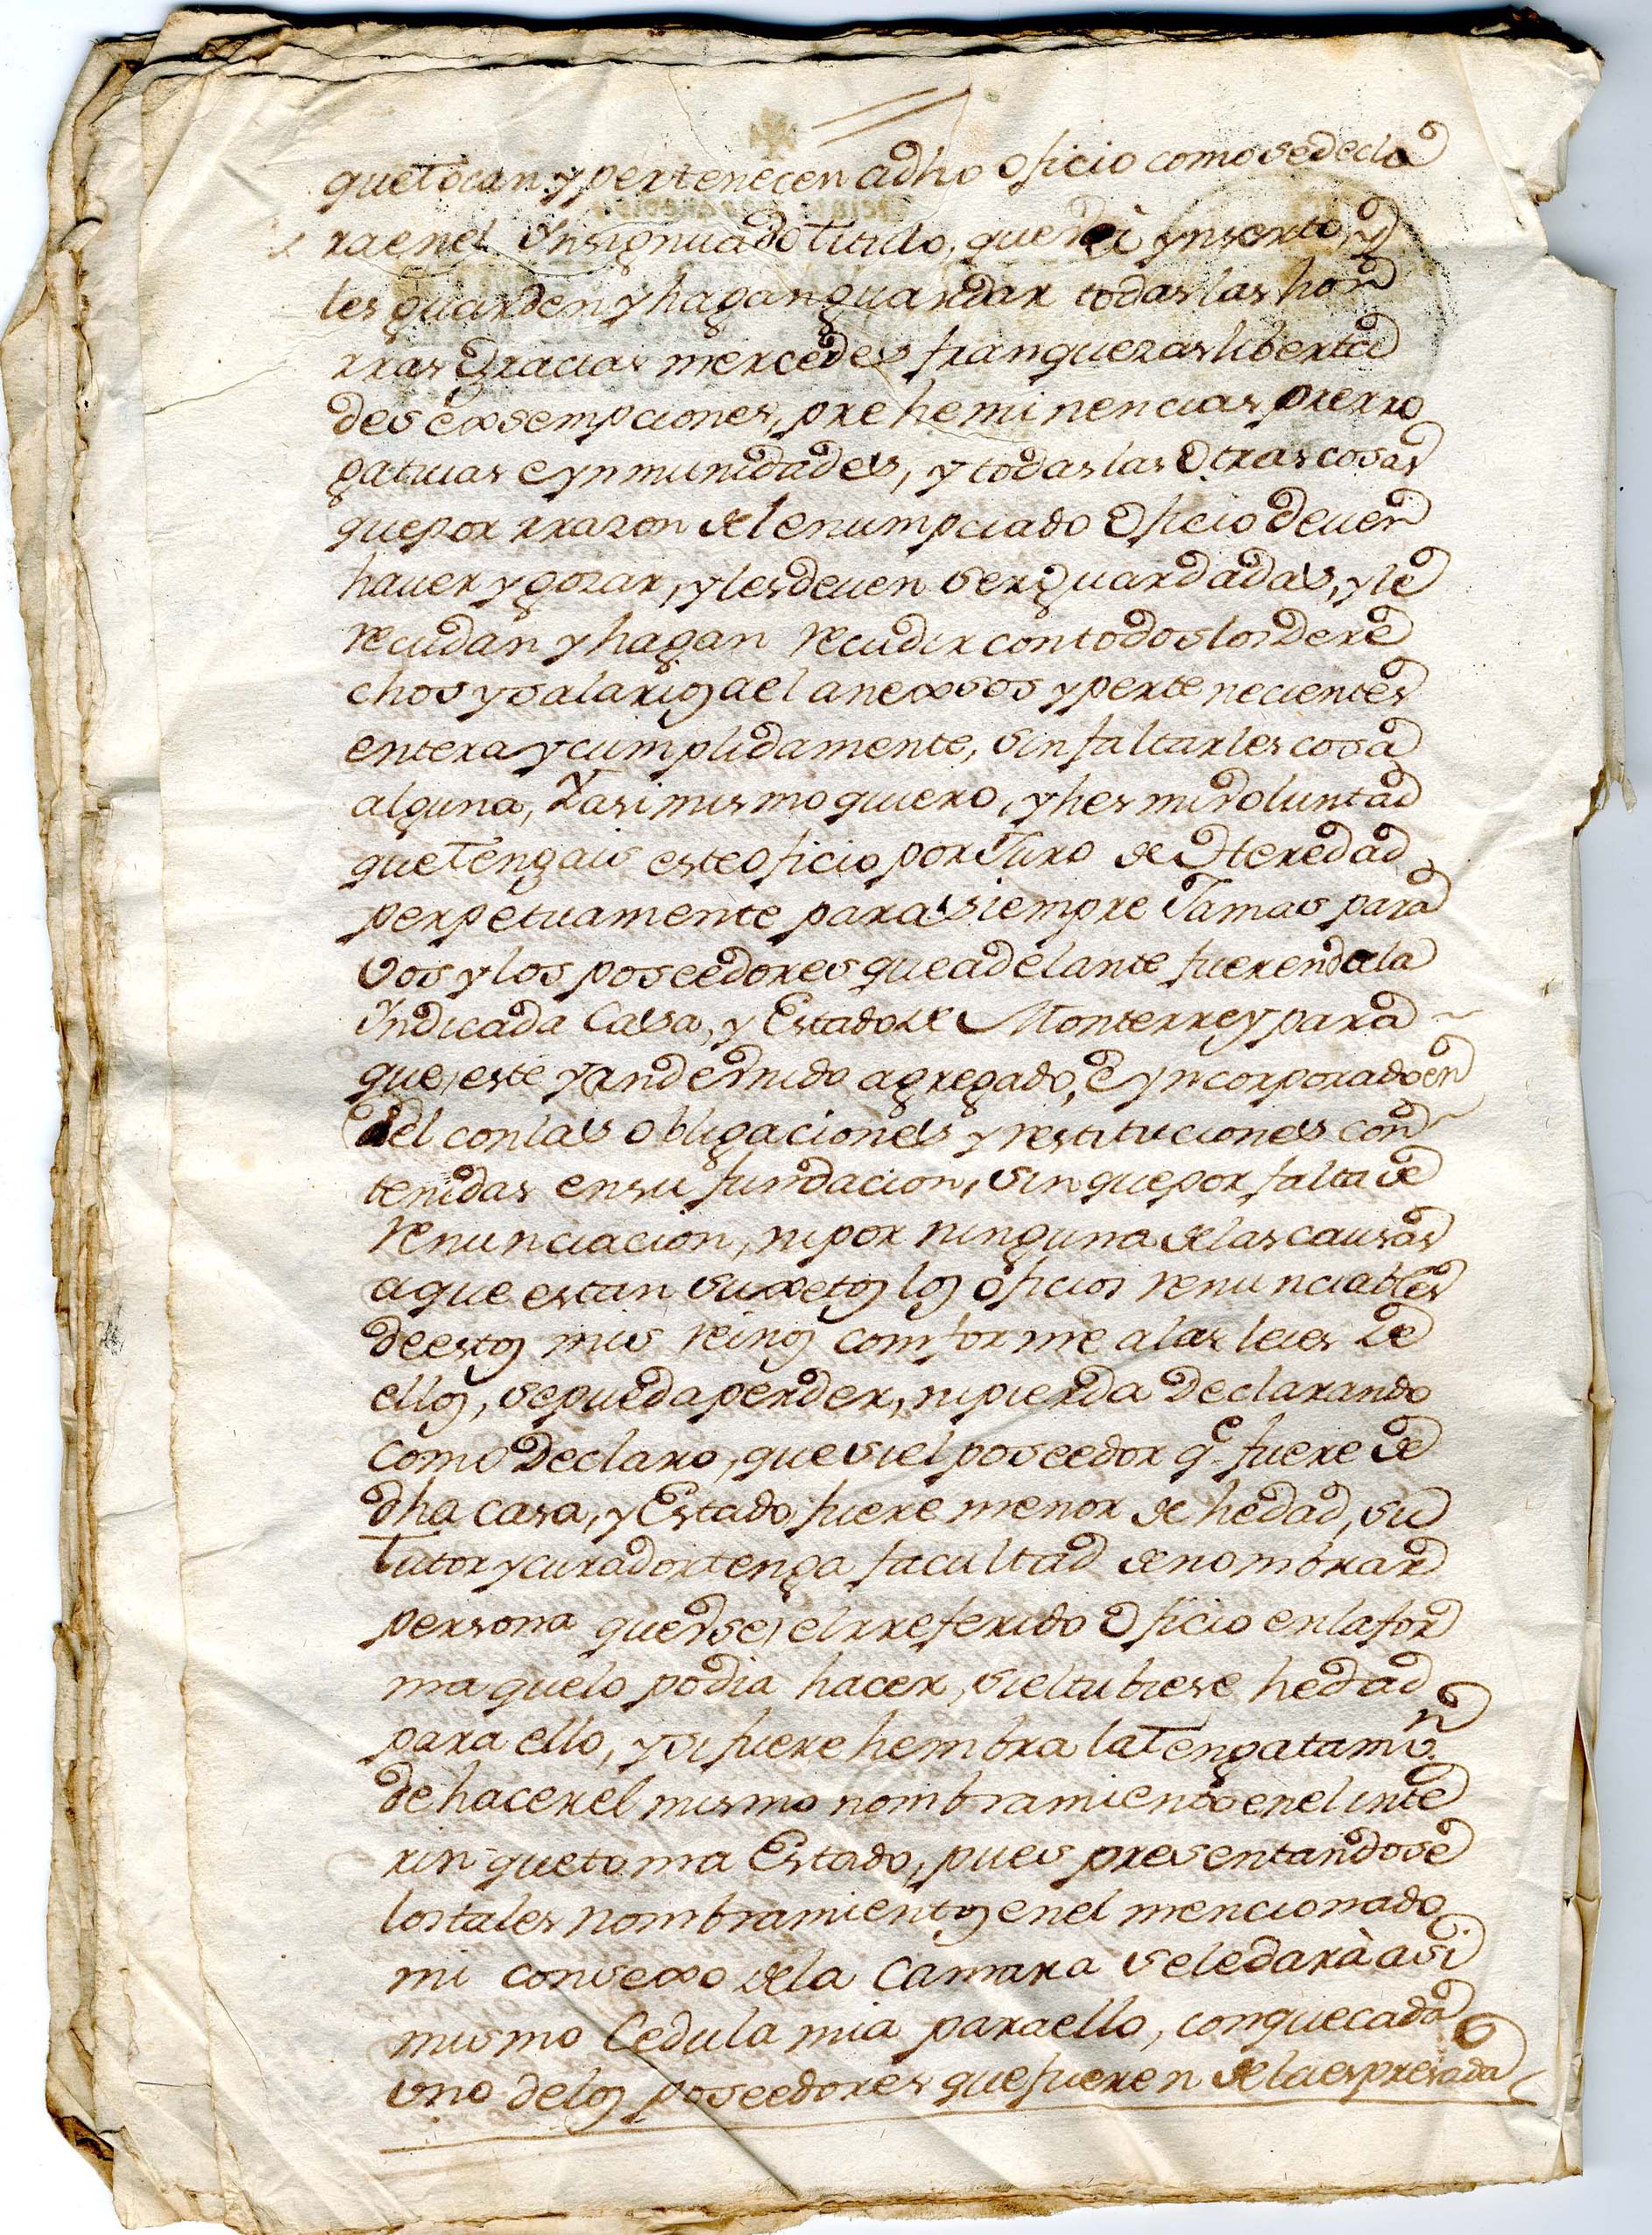 que tocan y pertenecen a dho oficio como se decla
ra en el Ynsignuado titulo, que ba ynserto, y
les guarden y hagan guardar todas las hon
rras Gracias mercedes franquezas liberta
des exsempciones, prehemi nencias prerro
gatiuas e ynmunidades, y todas las otras cosas
que por rrazon del enumpciado oficio deuen
hauer y gozar, y les deuen ser guardadas, y le
recudan y hagan recudir con todos los dere
chos y salarios a el anexsos y perte necientes
entera y cumplidamente, sin faltarles cosa
alguna, Y asi mismo quiero, y hes mi voluntad
que Tengais este oficio por Juro de Heredad
perpetuamente para siempre Jamas para
Vos y los poseedores que adelante fueren de la
Yndicada Casa, y Estado de Monterrey para
que este y ande vnido agregado, e yncorporado en
el con las obligaciones y restituciones con
tenidas en su fundacion, sin que por falta de
renunciacion, ni por ninguna de las causas
a que estan suxetos los oficios renunciables
de estos mis reinos comforme a las leies de
ellos, se pueda perder, ni pierda Declarando
como Declaro, que si el poseedor q.e fuere de
dha casa, y Estado fuere menor de hedad, su
Tutor y curador tenga facultad de nombrar
persona que vse el rreferido oficio en la for
ma que lo podia hacer, si el tubiese hedad
para ello, y si fuere hembra la Tenga tamv.n
de hacer el mismo nombramiento en el inte
rin que toma Estado, pues presentandose
los tales nombramientos en el mencionado
mi consexo de la Camara se le darà asi
mismo Cedula mia para ello, con que cada
vno de los poseedores que fueren de la espresada